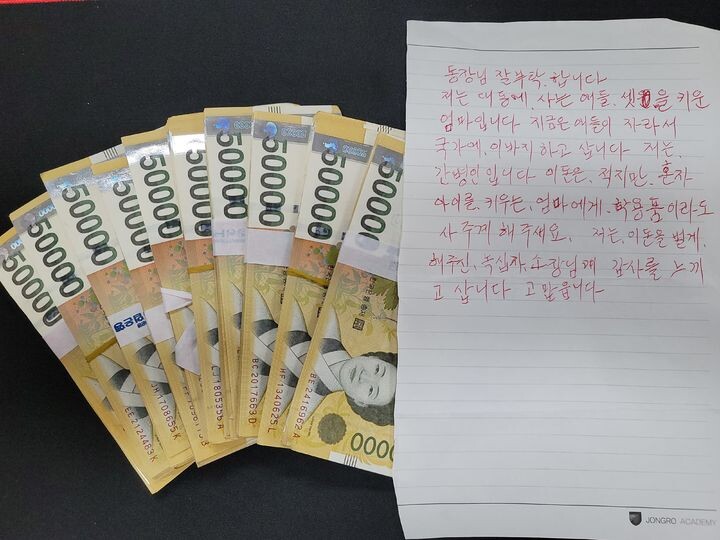 50000
50000
50000
50000
50000
50000
50000
50000
50000
50000
EE 2124483 K
JH 1708655 K
LJ 1805356 A
BC 2017663 D
HF 1340625 L
BE 2416962 A
0000
동장님 잘부탁.합니다
저는 대동에 사는 애들, 셋을 키운
엄마입니다 지금은 애들이 자라서
국가에, 이바지 하고 삽니다 저는,
간병인입니다 이돈은, 적지만, 혼자
아이를, 키우는, 엄마에게, 학용품이라도
사 주게 해주세요, 저는, 이돈을 벌게,
해주신, 녹십자, 소장님께 감사를 느끼
고 삽니다 고맙읍니다
JONGRO ACADEMY